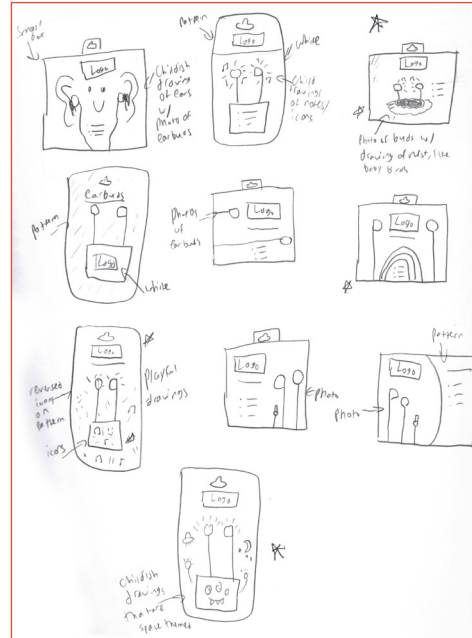 Small
box
Logo
Childish
drawing
of ears
w/
photo of
earbuds
pattern
Logo
white
child
drawings
of notes/
icons
Logo
Photo of buds w/
drawing of nest, like
baby birds
pattern
earbuds
Logo
white
photos
of
earbuds
Logo
Logo
reversed
icons
on
pattern
icons
Logo
Playful
drawings
Logo
photo
Pattern
Logo
photo
Logo
Childish
drawings
that are
space themed